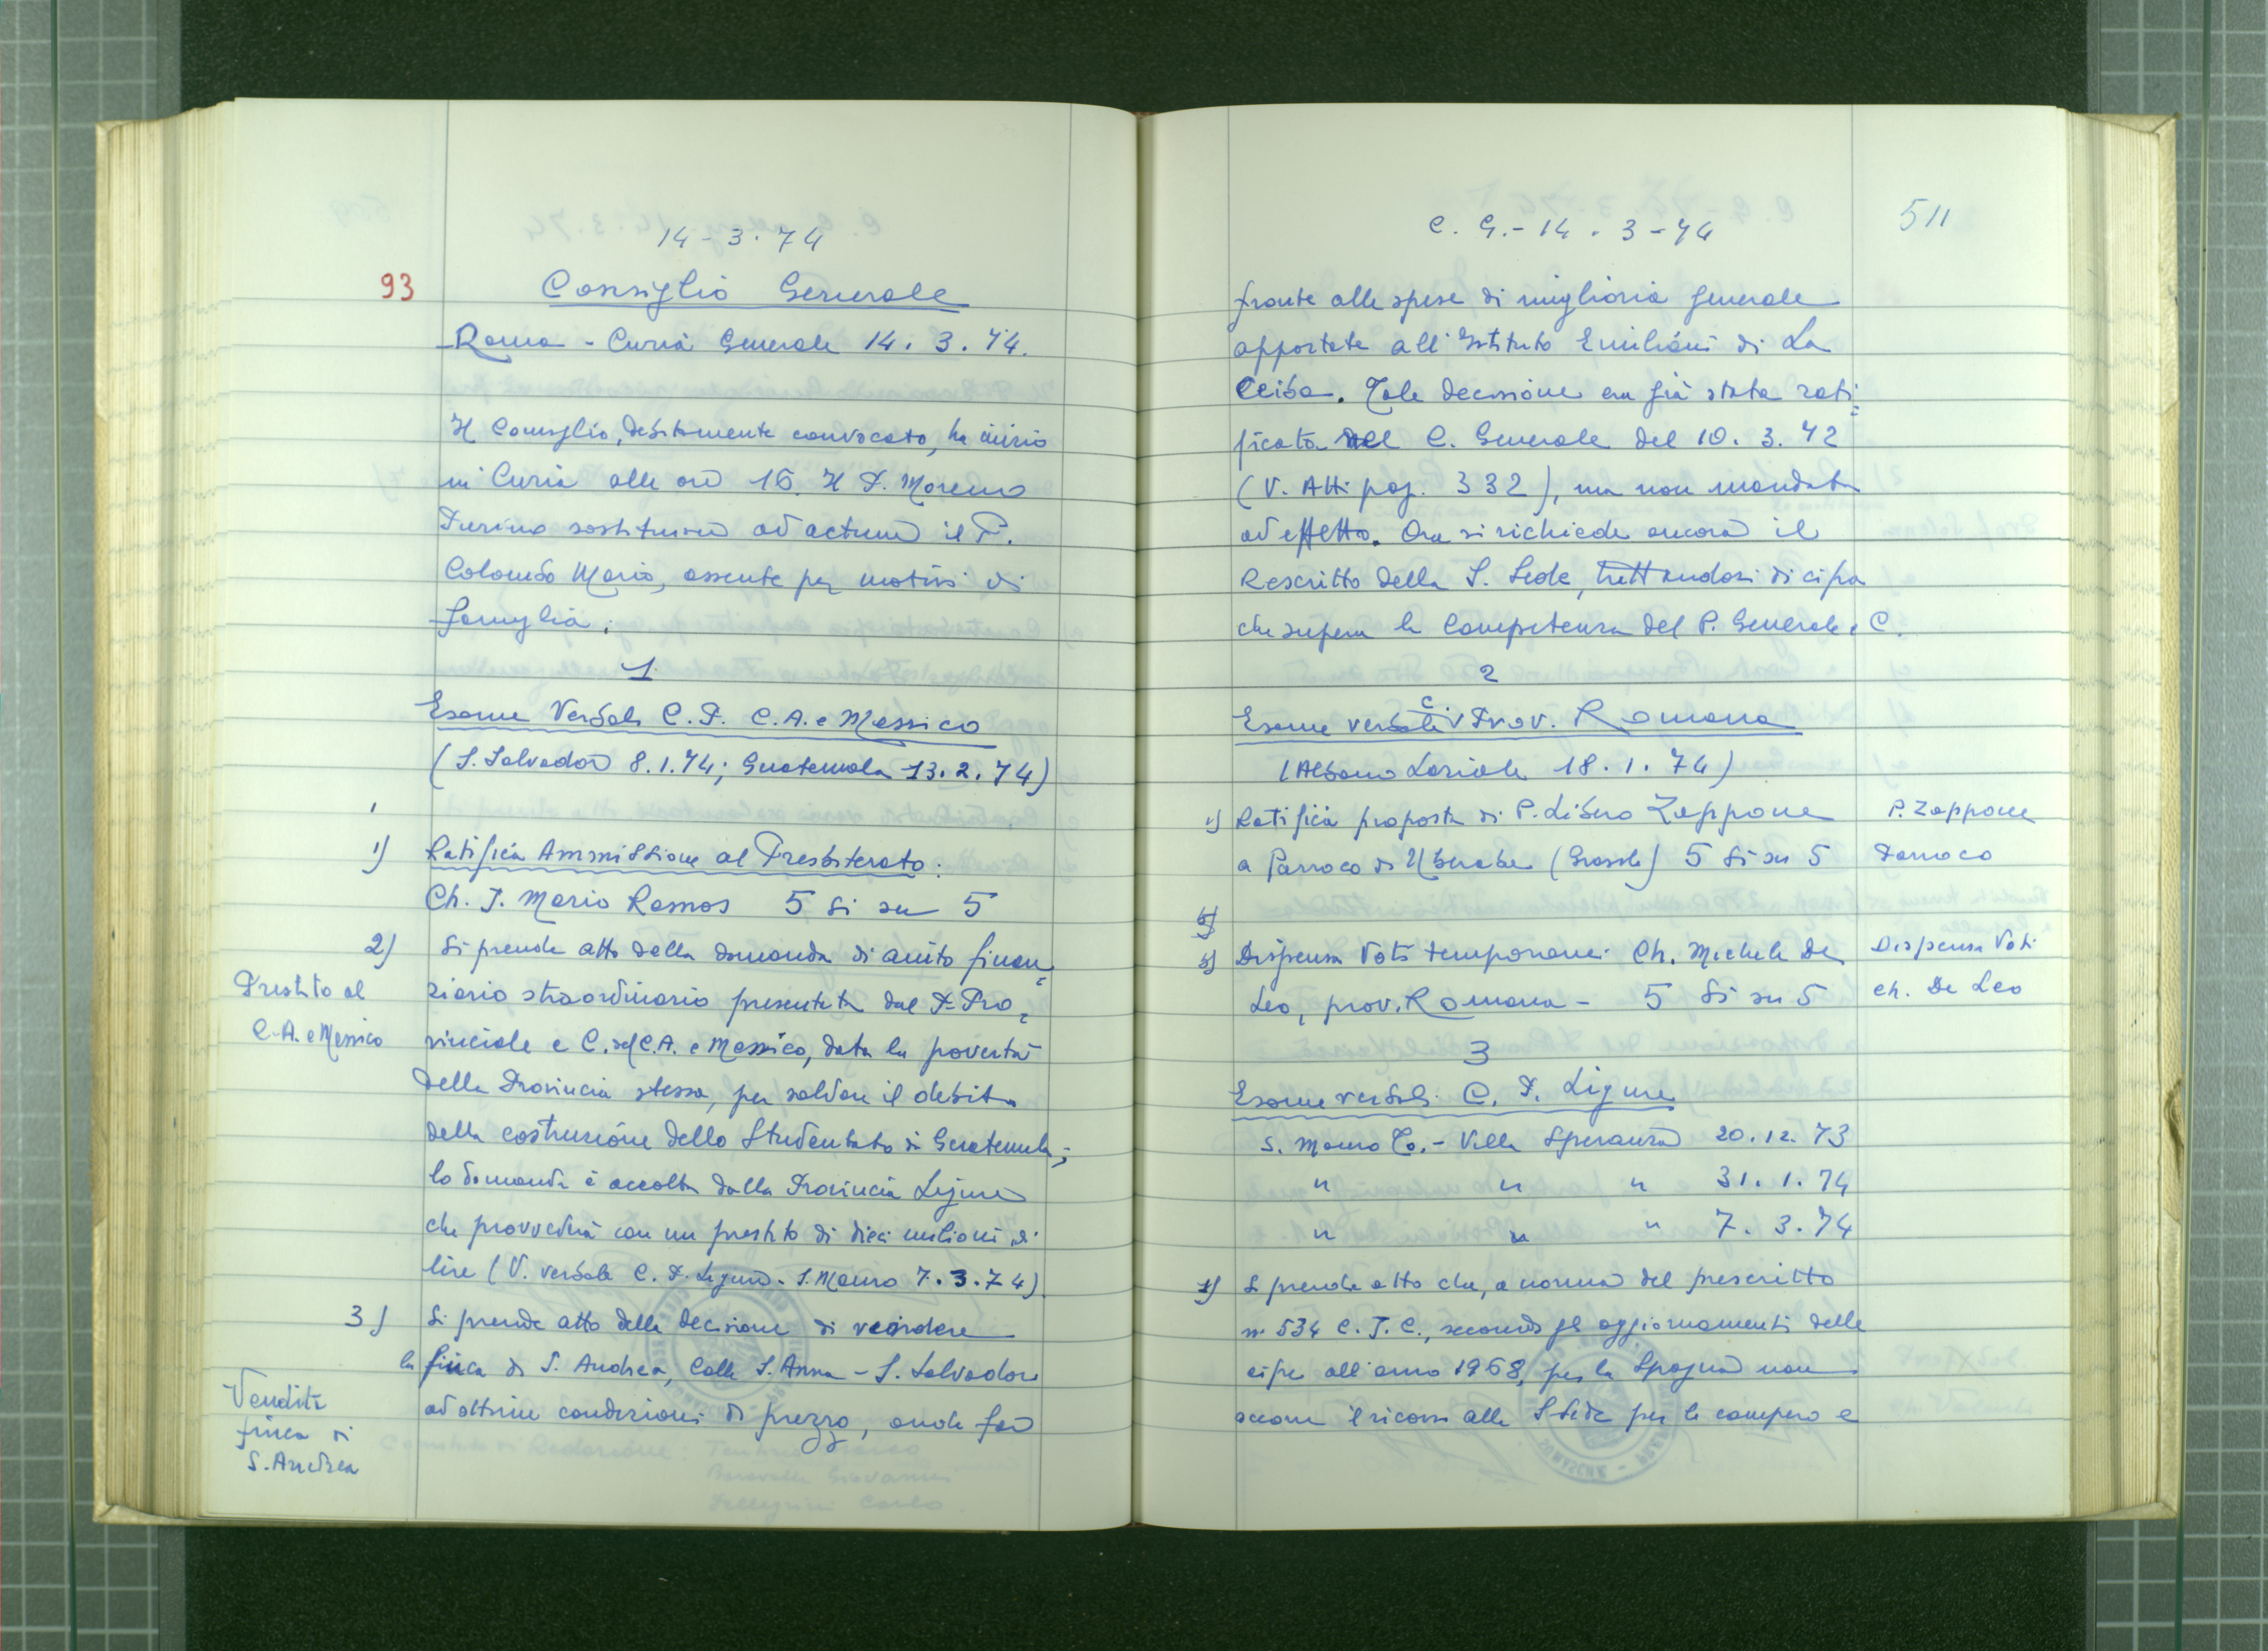 14-3.74
93
Consiglio Generale
Roma - Curia Generale 14.3.74.
Il Consiglio, debitamente convocato, ha inizio
in Curia alle ore 16. Il P. Moreno
Turino sostituisce ad actum il P.
Colombo Mario, assente per motivi di
famiglia.
1
Esame Verbali C.P. C.A. e Messico
(S. Salvador 8.1.74; Guatemala 13.2.74)
1) Ratifica Ammissione al Presbiterato:
Ch. J. Mario Ramos 5 si su 5
2) Si prende atto della domanda di aiuto finan=
Prestito al
C.A. e Messico
ziario straordinario presentata dal P. Pro=
vinciale e C. del C.A. e Messico, data la povertà
della Provincia stessa, per saldare il debito
della costruzione dello Studentato di Guatemala;
la domanda è accolta dalla Provincia Ligure
che provvederà con un prestito di dieci milioni di
lire (V. verbale C.P. Ligure. S. Mauro 7.3.74).
3) Si prende atto della decisione di vendere
la finca di S. Andrea, Calle S. Anna - S. Salvador
Vendita
finca di
S. Andrea
ad ottime condizioni di prezzo, onde far
C.G.- 14.3-74
511
fronte alle spese di miglioria generale
apportate all'Istituto Emiliani di La
Ceiba. Tale decisione era già stata rati=
ficata nel C. Generale del 10.3.72
(V. Atti pag. 332), ma non mandata
ad effetto. Ora si richiede ancora il
Rescritto della S. Sede, trattandosi di cifra
che supera la competenza del P. Generale e C.
2
Esame verbale C. Prov. Romana
(Albano Laziale 18.1.74)
1) Ratifica proposta di P. Libero Zappone
P. Zappone
a Parroco di Uberaba (Brasile) 5 si su 5
Parroco
Dispensa Voti temporanei: Ch. Michele De
Dispensa Voti
Leo, prov. Romana - 5 si su 5
ch. De Leo
3
Esame verbali C.P. Ligure
S. Mauro To. - Villa Speranza 20.12.73
" " " 31.1.74
" " " 7.3.74
1) Si prende atto che, a norma del prescritto
n. 534 C.J.C., secondo gli aggiornamenti delle
cifre all'anno 1968, per la Spagna non
occorre il ricorso alla S Sede per la compera e